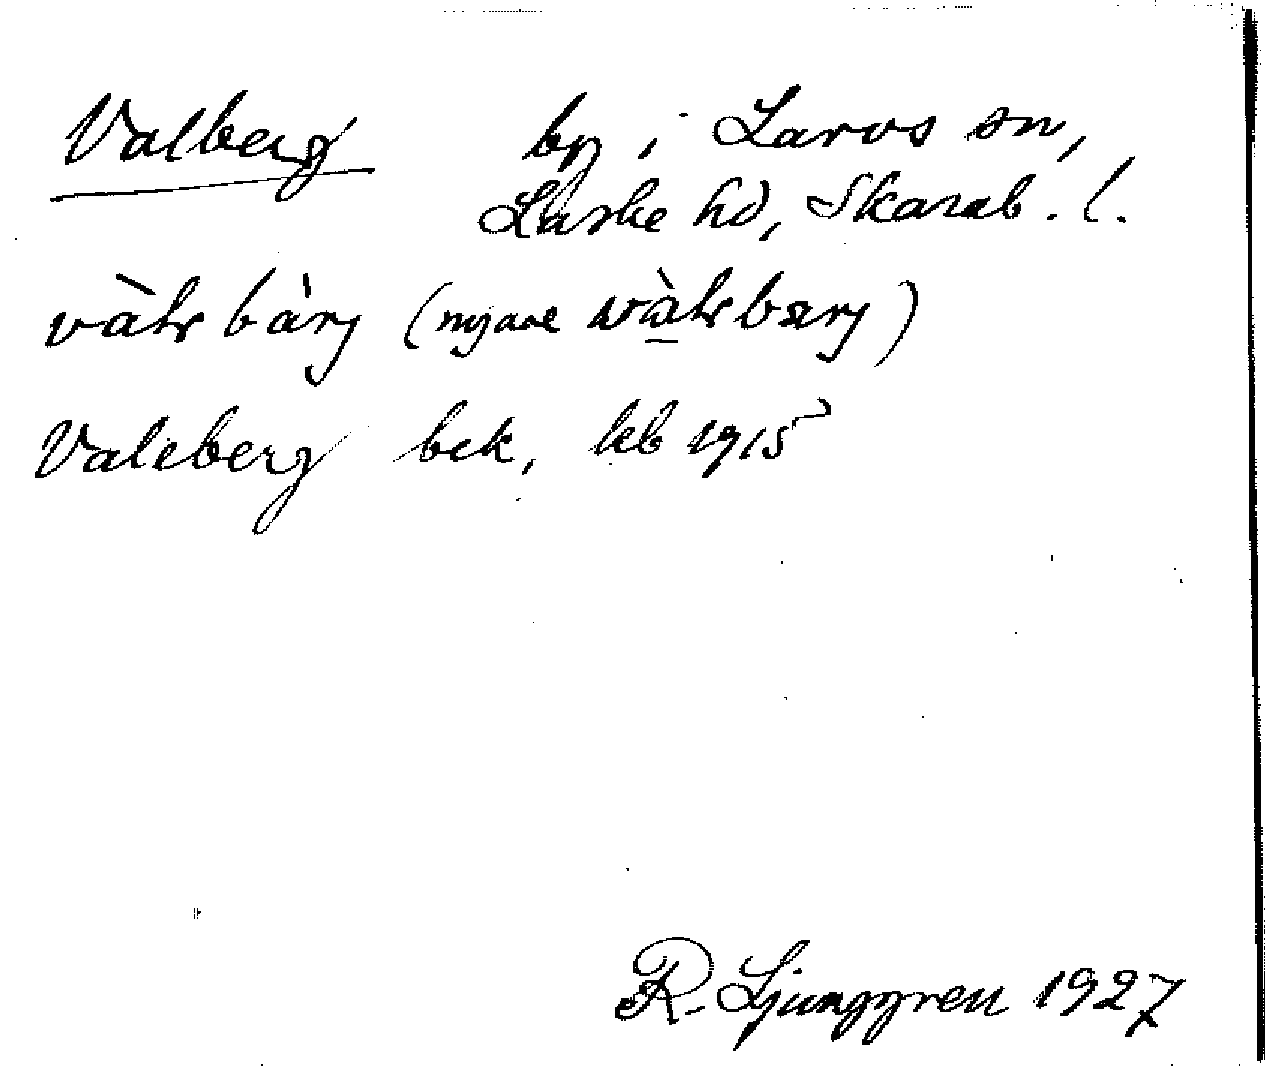 Valberg by i Larvs sn,
Laske hd, Skarab. l.
vàtsbàrj (nyare vàtsbærj)
Valeberg bek, kb 1915
R. Ljunggren 1927